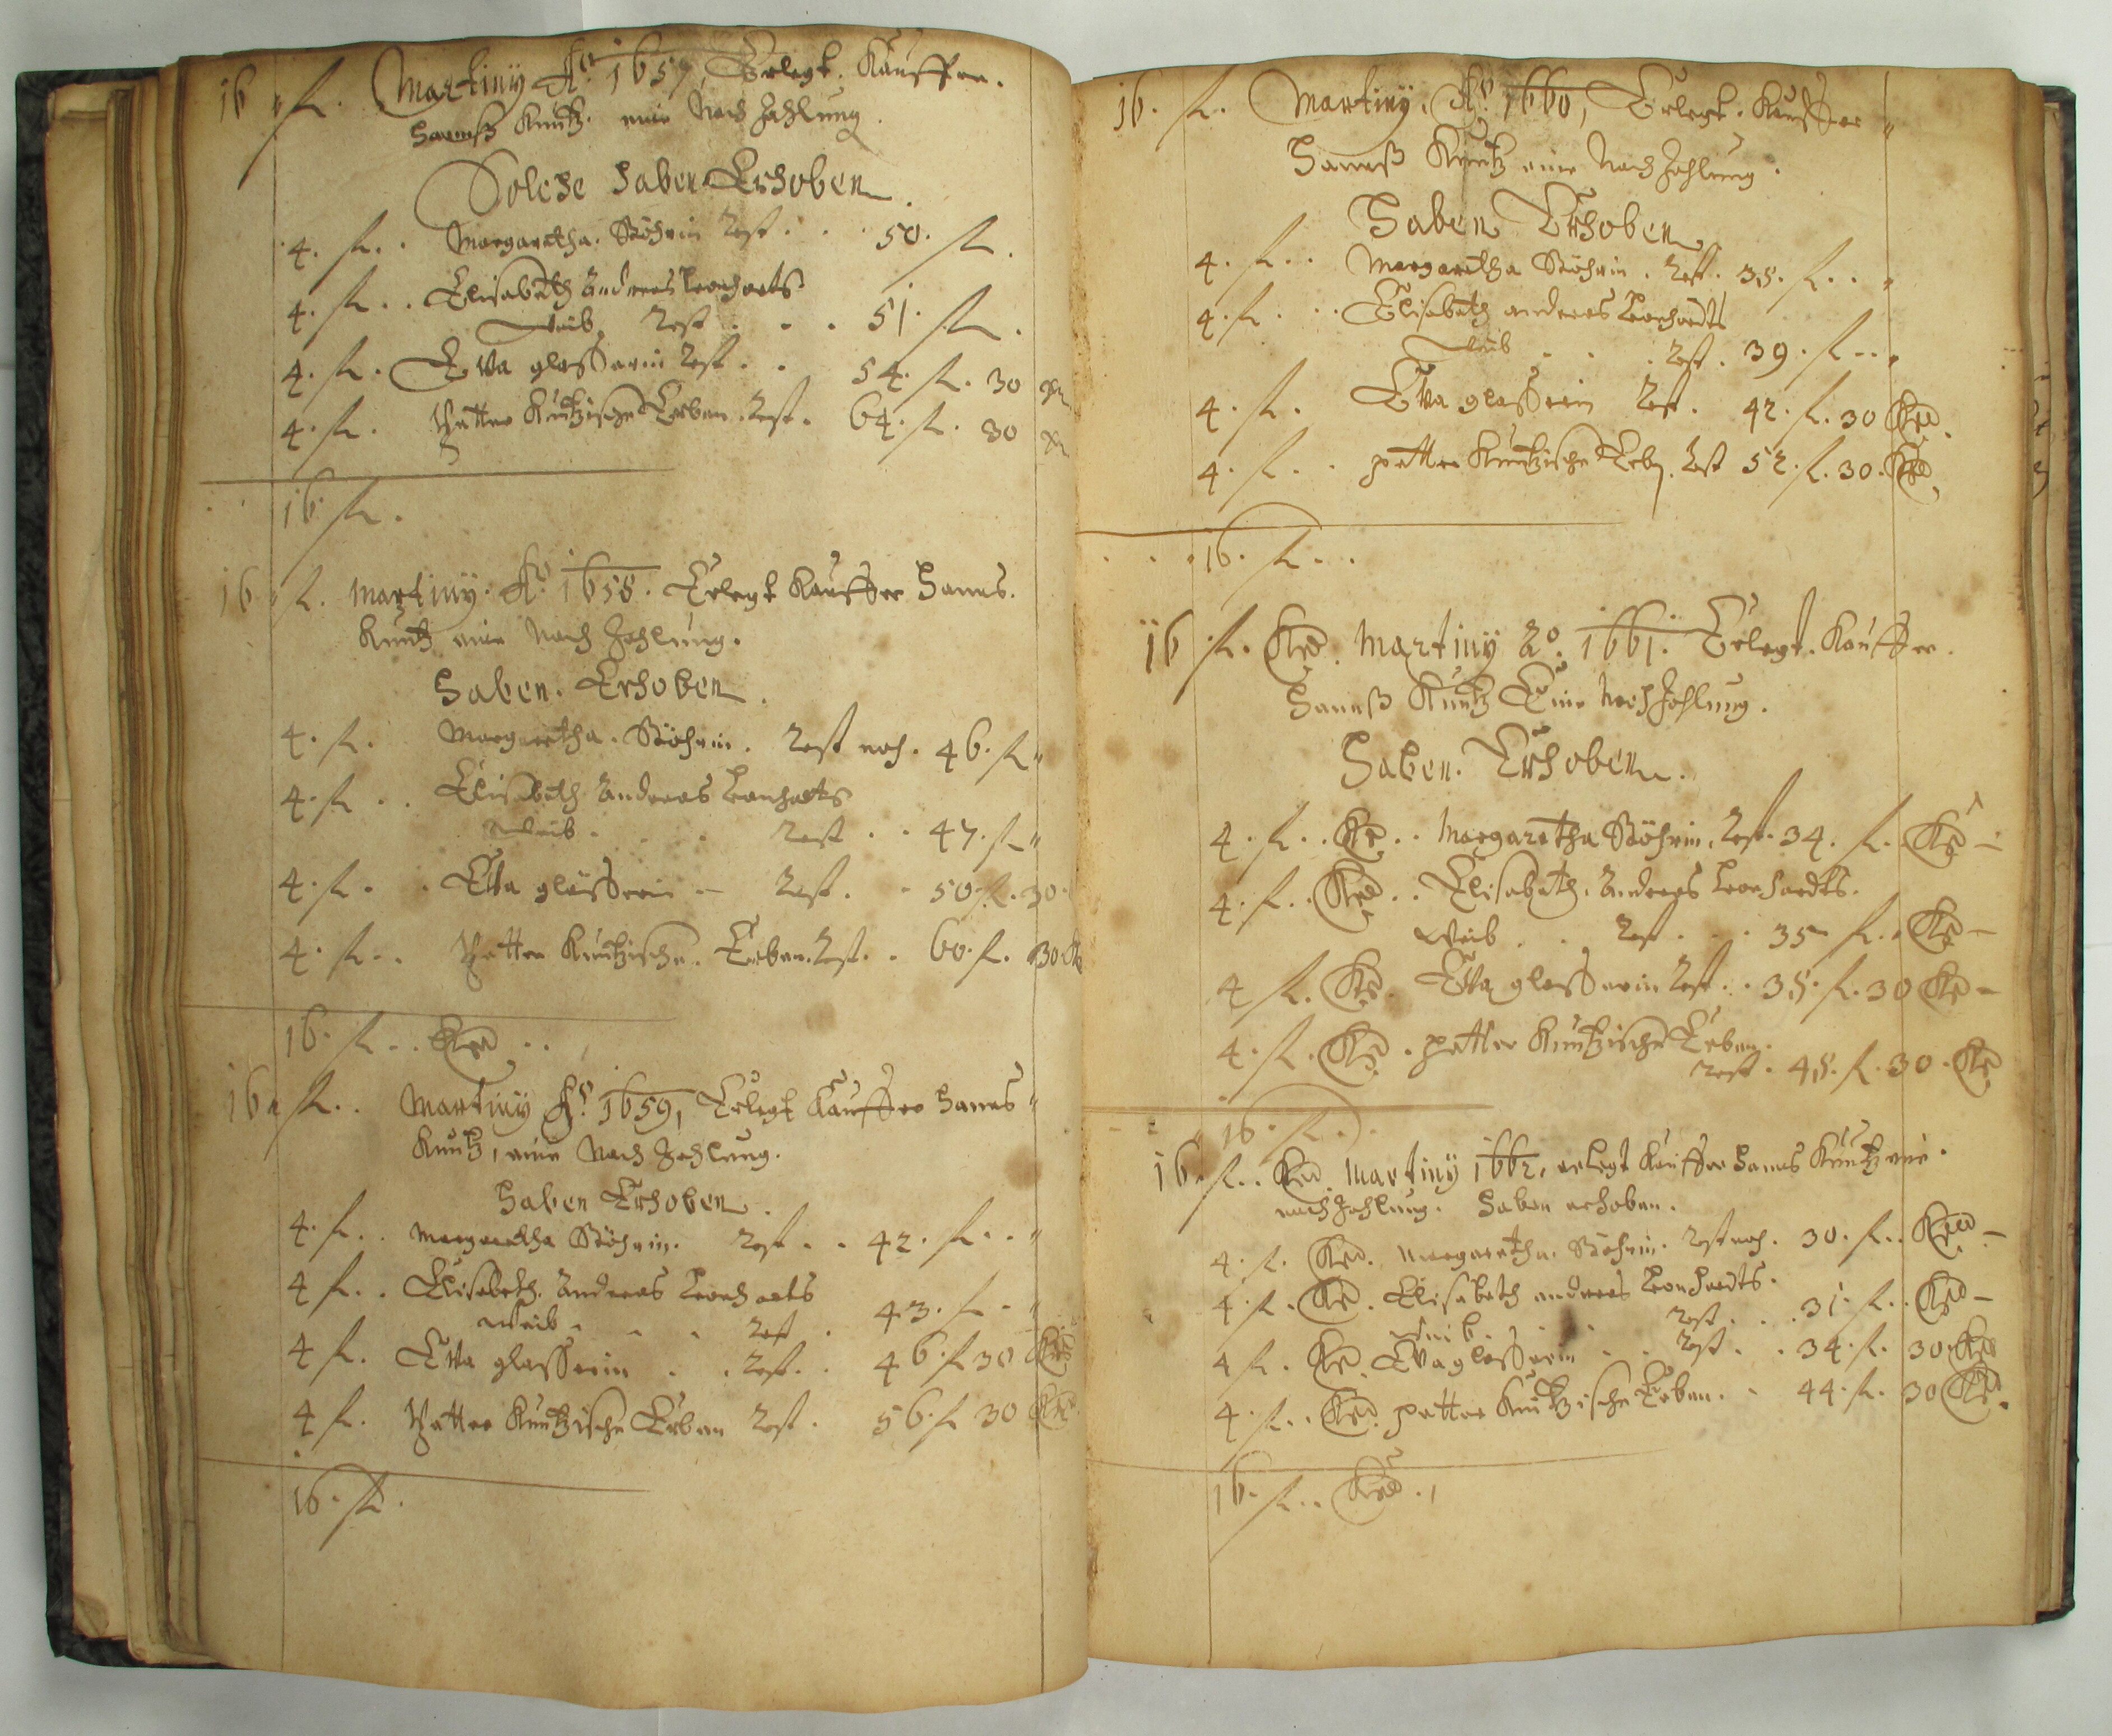 16 fl. Martiny Ao. 1657, Erlegt Kauffer.
Hannß Kuntz. eine Nach Zahlung.
Solche haben Erhoben
4. fl. . Margaretha. Stöhrin Rest . . . 50. fl.
4. fl. . . Elisabeth Andreas Leonharts
Weib, Rest . . . 51. fl.
4. fl. Eva glasserin Rest . . 54. fl. 30 xr
4. fl. Petter Kuntzische Erben. Rest. 64. fl. 30 xr
16 fl.
16 fl. Martiny. Ao. 1658. Erlegt Kauffer Hanns.
Kuntz eine Nach Zahlung.
Haben. Erhoben.
4. fl. Margaretha. Stöhrin. Rest noch. 46. fl "
4. fl . . Elisabeth Andreas Leonharts
Weib . . . Rest . . 47. fl "
4. fl. . Eva glasserin — Rest. . 50. fl. 30.
4. fl. . Petter Kuntzische. Erben. Rest. . 60. fl. 30. Kr
16. fl. . Kr . .
16 fl. . Martiny Ao. 1659, Erlegt Kauffer Hanns "
Kuntz, eine Nach Zahlung.
Haben Erhoben.
4. fl. . Margaretha Stöhrin. Rest . . 42. fl. . "
4 fl. . Elisabeth. Andreas Leonharts
Weib . . . Rest . 43. fl . "
4 fl. Eva glasserin . . Rest. . 46. fl 30 Kr
4 fl. Petter Kuntzische Erben Rest. 56. fl 30 Kr
16. fl.
16. fl. Martiny. Ao. 1660, Erlegt. Kauffer "
Hannß Kuntz eine Nach Zahlung.
Haben Erhoben.
4. fl. . Margaretha Stöhrin. Rest. 38. fl. . "
4. fl . . . Elisabeth andreas Leonhardts
Weib . . . Rest. 39. fl . . "
4. fl. Eva glasserin Rest. 42. fl. 30 Kr.
4. fl. . petter Kuntzische Erb. Rest 52. fl. 30. Kr.
. . . 16. fl. . .
16 fl. Kr. Martiny Ao. 1661. Erlegt. Kauffer.
Hannß Kuntz Eine Nach Zahlung.
Haben. Erhoben.
4. fl. . Kr. . Margaretha Stöhrin. Rest. 34. fl. Kr —
4. fl. . Kr . . Elisabeth. Andreas Leonhardts.
Weib . . Rest . . . 35 fl. . Kr —
4 fl. Kr. Eva glasserin Rest. . 38. fl. 30 Kr —
4. fl. Kr. petter Kuntzische Erben.
Rest. 48. fl. 30. Kr
16. fl. .
16. fl. . Kr. Martiny 1662, erlegt Kauffer Hanns Kuntz eine.
nach Zahlung. Haben erhoben.
4. fl. Kr. Margaretha. Stöhrin. Rest noch. 30. fl. . Kr —
4. fl. Kr. Elisabeth andreas Leonhardts.
Weib . . . Rest . . . 31. fl. . Kr —
4 fl. Kr. Eva glasserin . . Rest . . 34. fl. 30. Kr
4. fl. . Kr. petter Kuntzische Erben. . 44. fl. 30 Kr.
16. fl. . Kr. ,